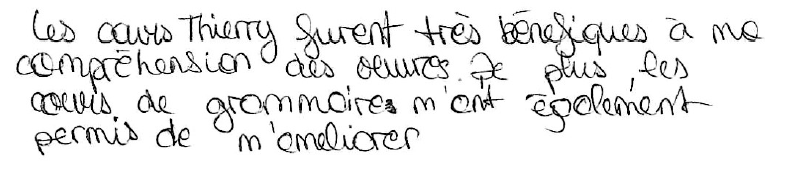 Les cours Thierry furent très bénéfiques à ma
compréhension des oeuvres. De plus, les
cours de grammaires m'ont également
permis de m'améliorer